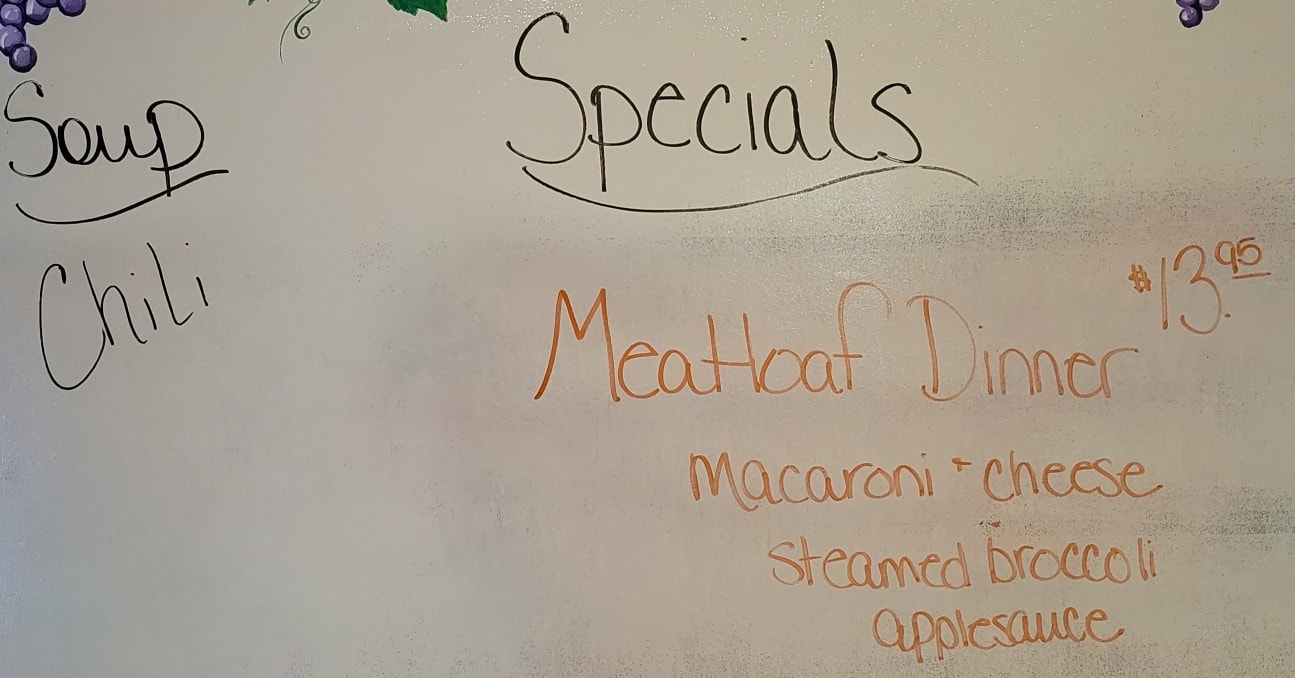 Soup
Chili
Specials
Meatloaf Dinner $13.95
Macaroni + cheese
steamed broccoli
applesauce